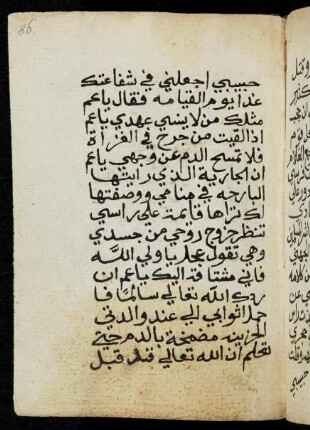 86.
حبيبي اجعلني في شفاعتك
غدا يوم القيامه فقال يا عم
مثلك من لا ينسي عهدي يا عم
اذ القيت من جرح في الغزاة
فلا تمسح الدم عن وجهي يا عم
ان الجارية الذي رايتها
البارحه في منامي ووصفتها
لك تراها قايمة علي راسي
تنتظر خروج روحي من جسدي
وهي تقول عجل يا ولي الله
فاني مشتاقة اليك يا عم ان
ردك الله تعالي سالما فا
حمل اثوابي الي عند والدتي
الحزينه مضمخة بالدم حتي
تعلم ان الله تعالي قد قبل